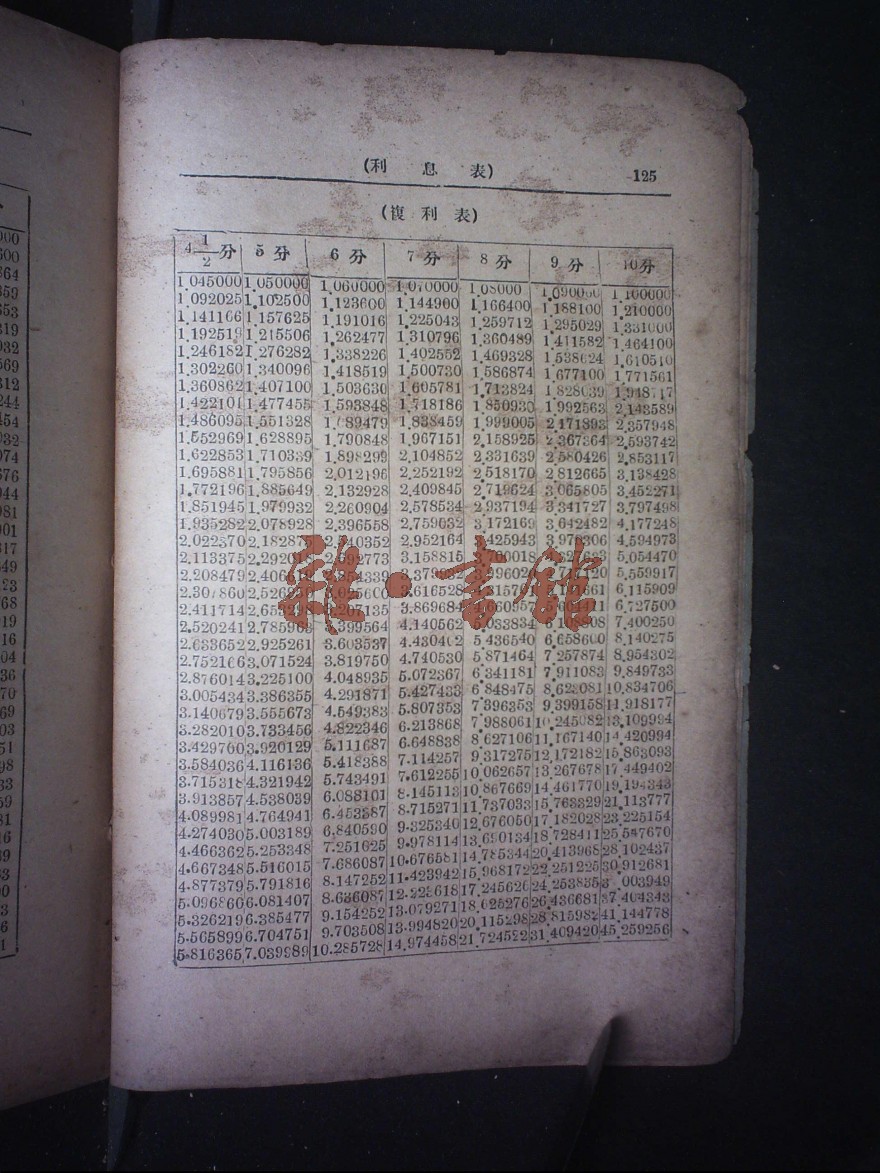 (利 息 表) 125
(複利表)
4 1/2 分 5 分 6 分 7 分 8 分 9 分 10分
1.045000 1.050000 1.060000 1.070000 1.08000 1.090000 1.100000
1.092025 1.102500 1.123600 1.144900 1.166400 1.188100 1.210000
1.141166 1.157625 1.191016 1.225043 1.259712 1.295029 1.331000
1.192519 1.215506 1.262477 1.310796 1.360489 1.411582 1.464100
1.246182 1.276282 1.338226 1.402552 1.469328 1.538624 1.610510
1.302260 1.340096 1.418519 1.500730 1.586874 1.677100 1.771561
1.360862 1.407100 1.503630 1.605781 1.713824 1.828039
1.422101 1.477455 1.593848 1.718186 1.850930 1.992563 2.143589
1.486095 1.551328 1.689479 1.838459 1.999005 2.171893 2.357948
1.552969 1.628895 1.790848 1.967151 2.158925 2.367364 2.593742
1.622853 1.710339 1.898299 2.104852 2.331639 2.580426 2.853117
1.695881 1.795856 2.012196 2.252192 2.518170 2.812665 3.138428
1.772196 1.885649 2.132928 2.409845 2.719624 3.065805 3.452271
1.851945 1.979932 2.260904 2.578534 2.937194 3.341727 3.797498
1.935282 2.078928 2.396558 2.759032 3.172169 3.642482 4.177248
2.022370 2.182875 2.952164 3.425943 3.970306 4.594973
2.113375 3.158815 5.054470
2.208479 5.559917
6.115909
2.411714 6.727500
2.520241 4.140562 7.400250
2.633652 2.925261 3.603537 4.430402 5.436540 6.658600 8.140275
2.752166 3.071524 3.819750 4.740530 5.871464 7.257874 8.954302
2.876014 3.225100 4.048935 5.072367 6.341181 7.911083 9.849733
3.005434 3.386355 4.291871 5.427433 6.848475 8.623081 10.834706
3.140679 3.555673 4.549383 5.807353 7.396353 9.399158 11.918177
3.282010 3.733456 4.822346 6.213868 7.988061 10.245082 13.109994
3.429700 3.920129 5.111687 6.648838 8.627106 11.167140 14.420994
3.584036 4.116136 5.418388 7.114257 9.317275 12.172182 15.863093
3.715318 4.321942 5.743491 7.612255 10.062657 13.267678 17.449402
3.913857 4.538039 6.088101 8.145113 10.867669 14.461770 19.194343
4.089981 4.764941 6.453387 8.715271 11.737033 15.763329 21.113777
4.274030 5.003189 6.840590 9.325340 12.676050 17.182028 23.225154
4.466362 5.253348 7.251025 9.978114 13.690134 18.728411 25.547670
4.667348 5.516015 7.686087 10.676581 14.785344 20.413968 28.102437
4.877379 5.791816 8.147252 11.423942 15.968172 22.251225 30.912681
5.096860 6.081407 8.636087 12.223618 17.245626 24.253835
5.326219 6.385477 9.154252 13.079271 18.625276 26.436681 37.404343
5.565899 6.704751 9.703508 13.994820 20.115298 28.815982 41.144778
5.816365 7.039989 10.285728 14.974458 21.724522 31.409420 45.259256
雅·書館